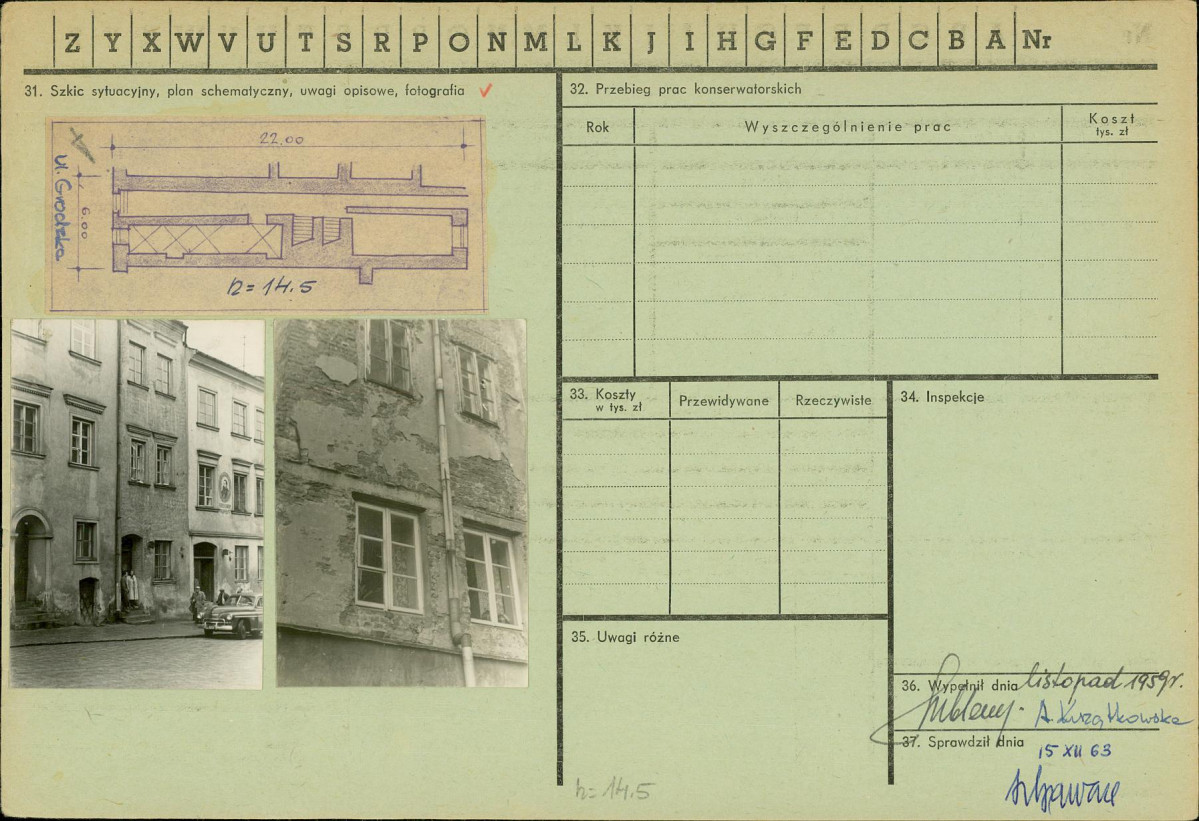 Z Y X W V U T S R P O N M L K J I H G F E D C B A Nr
31. Szkic sytuacyjny, plan schematyczny, uwagi opisowe, fotografia
22.00
ul. Grodzka
6.00
h = 14.5
32. Przebieg prac konserwatorskich
Rok Wyszczególnienie prac Koszt
tys. zł
33. Koszty
w tys. zł
Przewidywane Rzeczywiste
34. Inspekcje
35. Uwagi różne
36. Wypełnił dnia listopad 1959 r.
A. Kurzątkowska
37. Sprawdził dnia
15 XII 63
h = 14.5